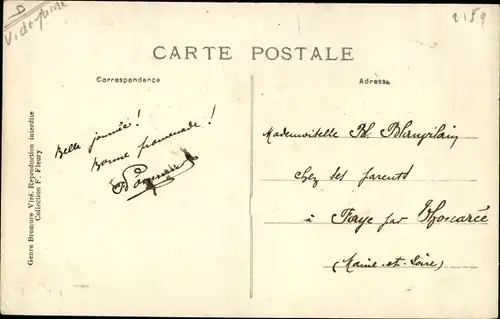 D
2159
CARTE POSTALE
Correspondance
Adresse
Belle journée!
Bonne promenade!
Mademoiselle Bl.
chez ses parents
à Faye par Thouarcé
(Maine-et-Loire)
Genre Bromure Viré. Reproduction interdite
Collection F. Fleury